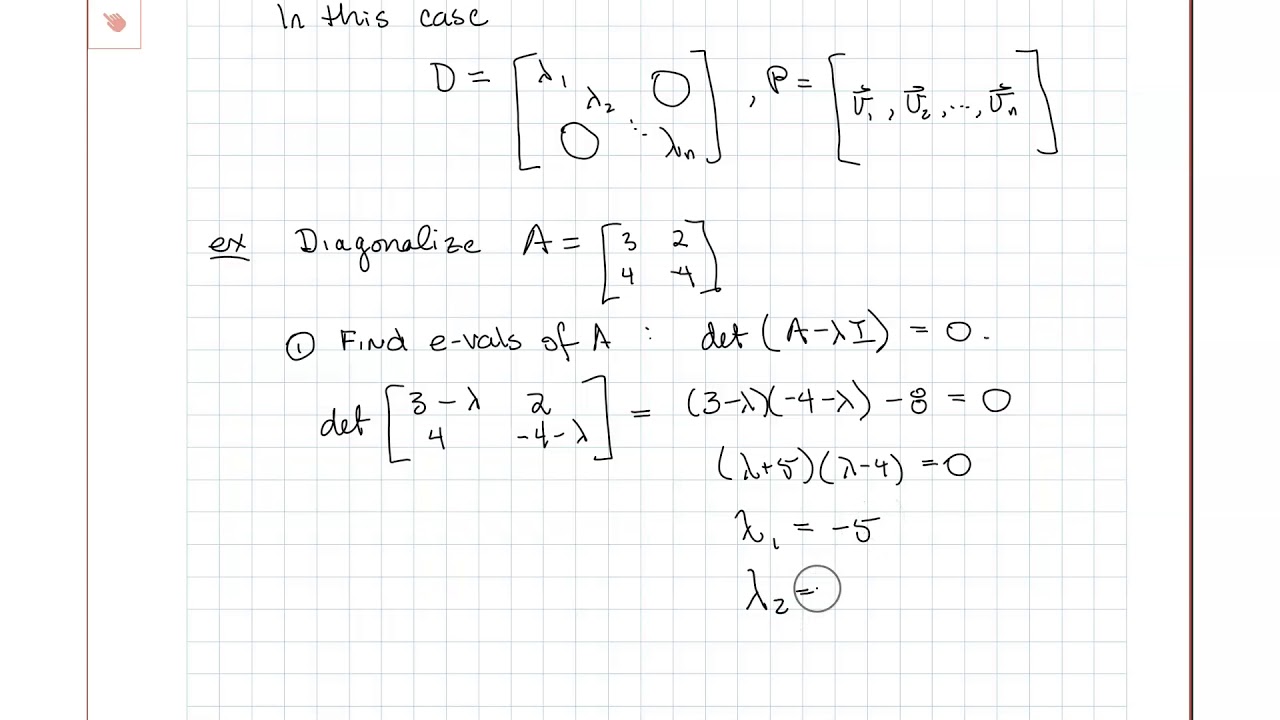 In this case
D = [λ₁ λ₂ 0 0 ⋱ λn] , P = [v⃗₁ , v⃗₂ , ..., v⃗n]
ex Diagonalize A = [3 2 4 -4]
① Find e-vals of A : det (A-λI) = 0.
det [3-λ 2 4 -4-λ] = (3-λ)(-4-λ) - 8 = 0
(λ+5)(λ-4) = 0
λ₁ = -5
λ₂ =